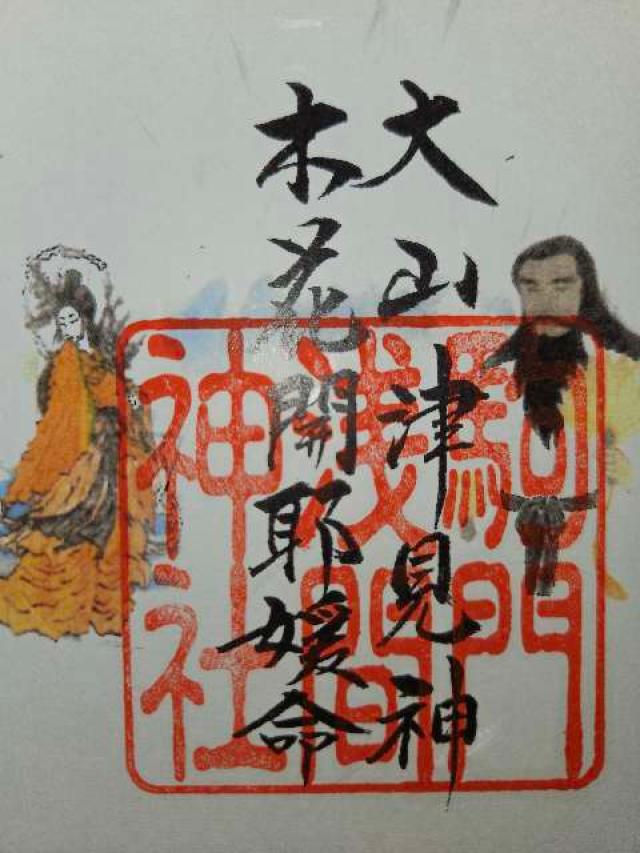 大山津見神
木花開耶媛命
駒門
淺間
神社